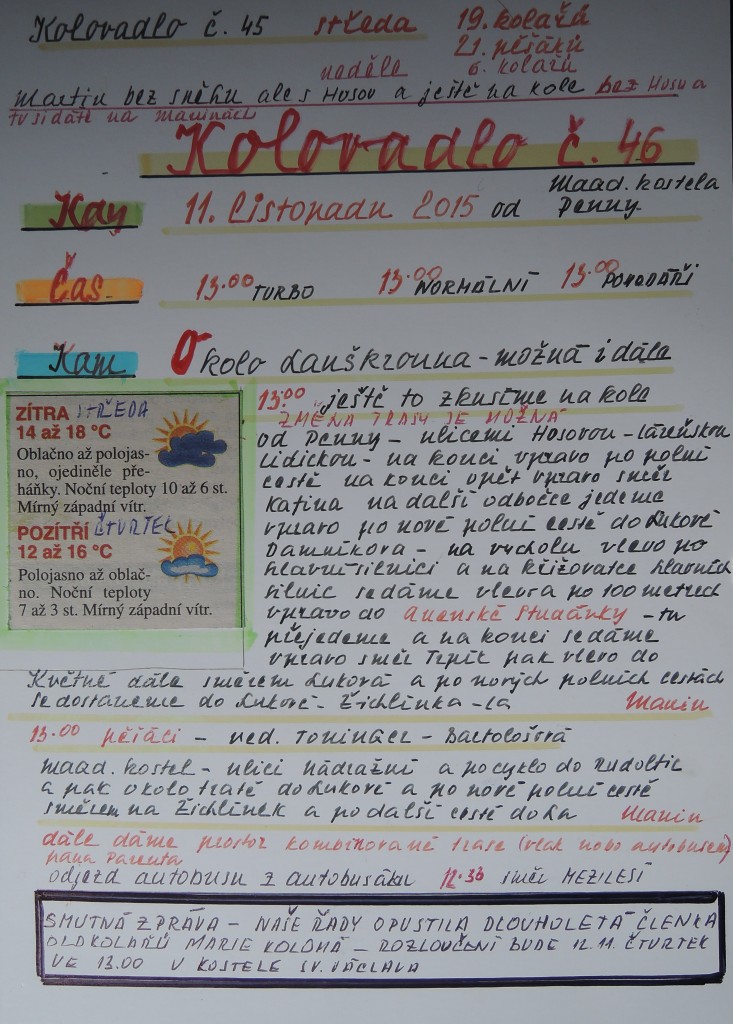 Kolovadlo č. 45 středa 19. kolařů
21. pěšáků
neděle 6. kolařů
Martin bez sněhu ale s Husou a ještě na kole bez Husu a
tu si dáte na Maninách
Kolovadlo č. 46
Kdy 11. Listopadu 2015 od Maad. kostela
Penny
Čas 13.00 TURBO 13.00 NORMÁLNÍ 13.00 POHODÁŘI
Kam Okolo Lanškrouna - možná i dále
ZÍTRA STŘEDA
14 až 18 °C
Oblačno až polojas-
no, ojediněle pře-
háňky. Noční teploty 10 až 6 st.
Mírný západní vítr.
POZÍTŘÍ ČTVRTEK
12 až 16 °C
Polojasno až oblač-
no. Noční teploty
7 až 3 st. Mírný západní vítr.
13.00 ještě to zkusíme na kole
ZMĚNA TRASY JE MOŽNÁ
od Penny - ulicemi Husovou - Lázeňskou
Lidickou - na konci vpravo po polní
cestě na konci opět vpravo směr
Katina na další odbočce jedeme
vpravo po nové polní cestě do Lukové
Damníkova - na vrcholu vlevo po
hlavní silnici a na křižovatce hlavních
silnic se dáme vlevo a po 100 metrech
vpravo do Anenské Studánky - tu
přejedeme a na konci se dáme
vpravo směr Trpík pak vlevo do
Květné dále směrem Luková a po nových polních cestách
se dostaneme do Lukové - Žichlínka - La Manin
13.00 pěšáci - ved. Toninace - Bartološová
Maad. kostel - ulicí nádražní a po cyklo do Rudoltic
a pak okolo tratě do Lukové a po nové polní cestě
směrem na Žichlínek a po další cestě do La Manin
dále dáme prostor kombinované trase (vlak nebo autobusem)
pana Parenta
odjezd autobusu z autobusáku 12.30 směr MEZILESÍ
SMUTNÁ ZPRÁVA - NAŠE ŘADY OPUSTILA DLOUHOLETÁ ČLENKA
OLDKOLAŘŮ MARIE KOLOMÁ - ROZLOUČENÍ BUDE 12.11. ČTVRTEK
VE 13.00 V KOSTELE SV. VÁCLAVA